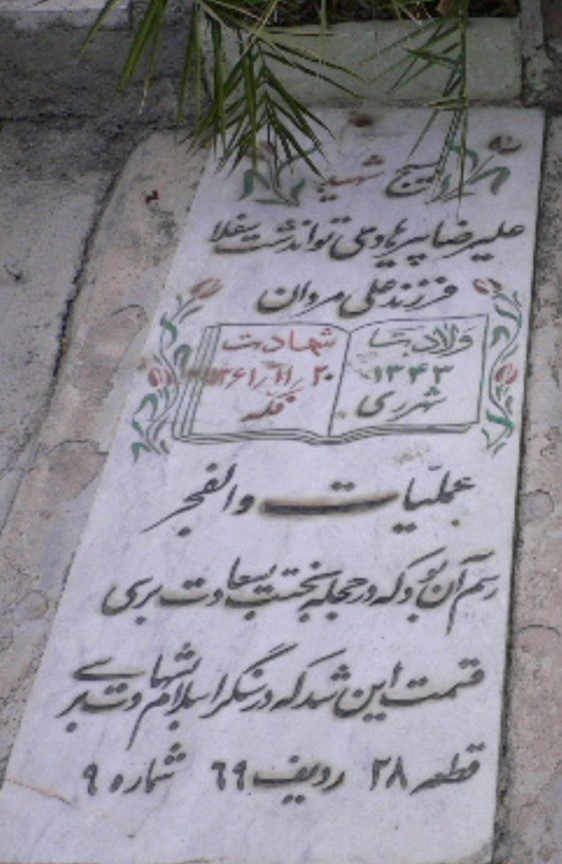 بسیج شهید
علیرضا پیرهادی تواندشت سفلا
فرزند علی مردان
ولادت
۱۳۴۳
شهرری
شهادت
۲۰/۱۱/۱۳۶۱
فکه
عملیات والفجر
رسم آن بود که در حجله بختت بسعادت برسی
قسمت این شد که در سنگر اسلام بشهادت برسی
قطعه ۲۸ ردیف ۶۹ شماره ۹